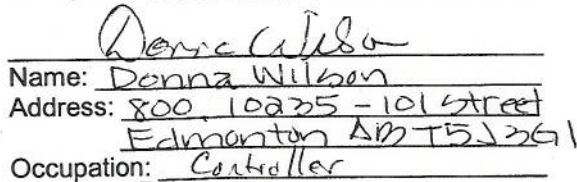 Donna Wilson
Name: Donna Wilson
Address: 800, 10235 - 101 Street
Edmonton AB T5J 3G1
Occupation: Controller